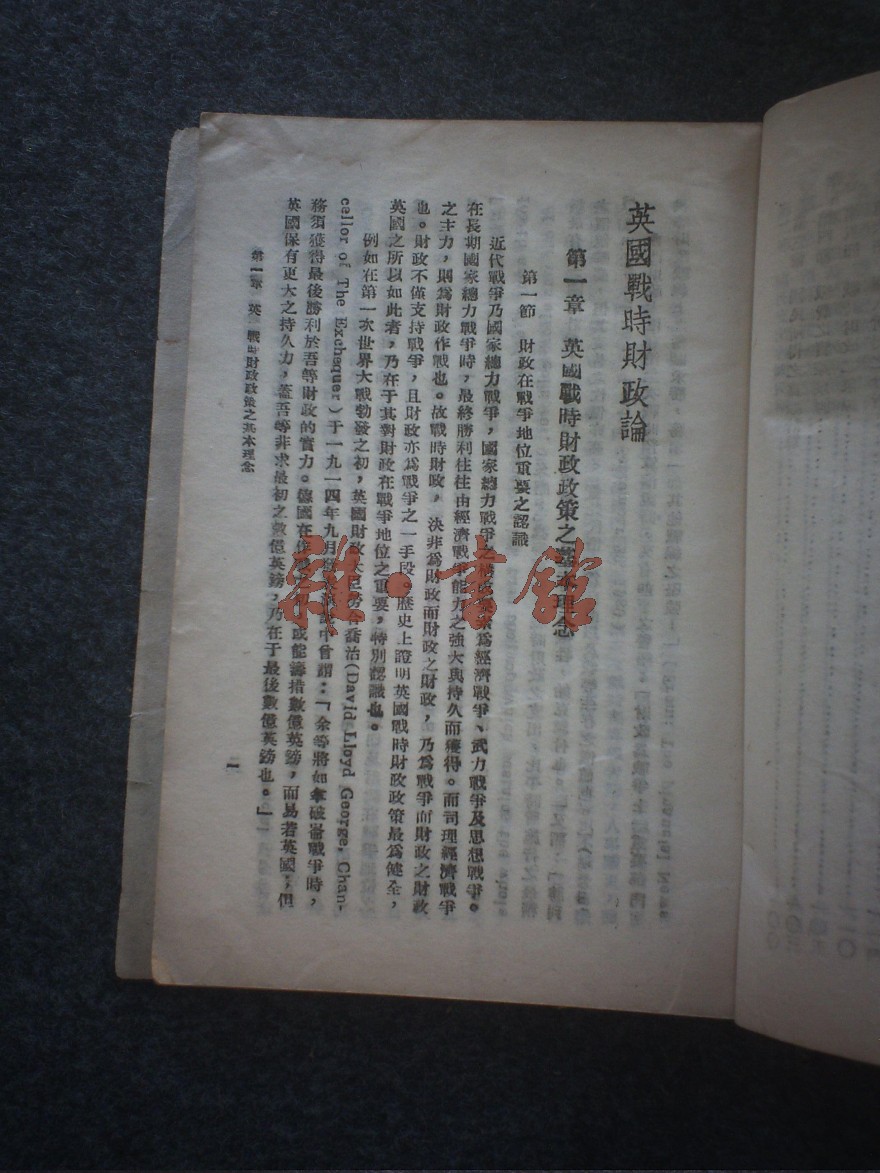 英國戰時財政論
第一章 英國戰時財政政策之基本理念
第一節 財政在戰爭地位重要之認識
近代戰爭乃國家總力戰爭，國家總力戰爭之構成要素為經濟戰爭、武力戰爭及思想戰爭。
在長期國家總力戰爭時，最終勝利往往由經濟戰爭能力之強大與持久而獲得。而司理經濟戰爭
之主力，則為財政作戰也。故戰時財政，決非為財政而財政之財政，乃為戰爭而財政之財政
也。財政不僅支持戰爭，且財政亦為戰爭之一手段。歷史上證明英國戰時財政政策最為健全，
英國之所以如此者，乃在于其對財政在戰爭地位之重要，特別認識也。
例如在第一次世界大戰勃發之初，英國財政大臣勞合喬治(David Lloyd George, Chan-
cellor of The Exchequer)于一九一四年九月 中曾謂：「余等將如拿破崙戰爭時，
務須獲得最後勝利於吾等財政的實力。德國在作戰之初，或能籌措數億英鎊，而易若英國；但
英國保有更大之持久力，蓋吾等非求最初之數億英鎊，乃在于最後數億英鎊也。」
第一章 英 戰時財政政策之基本理念
一
雜·書館